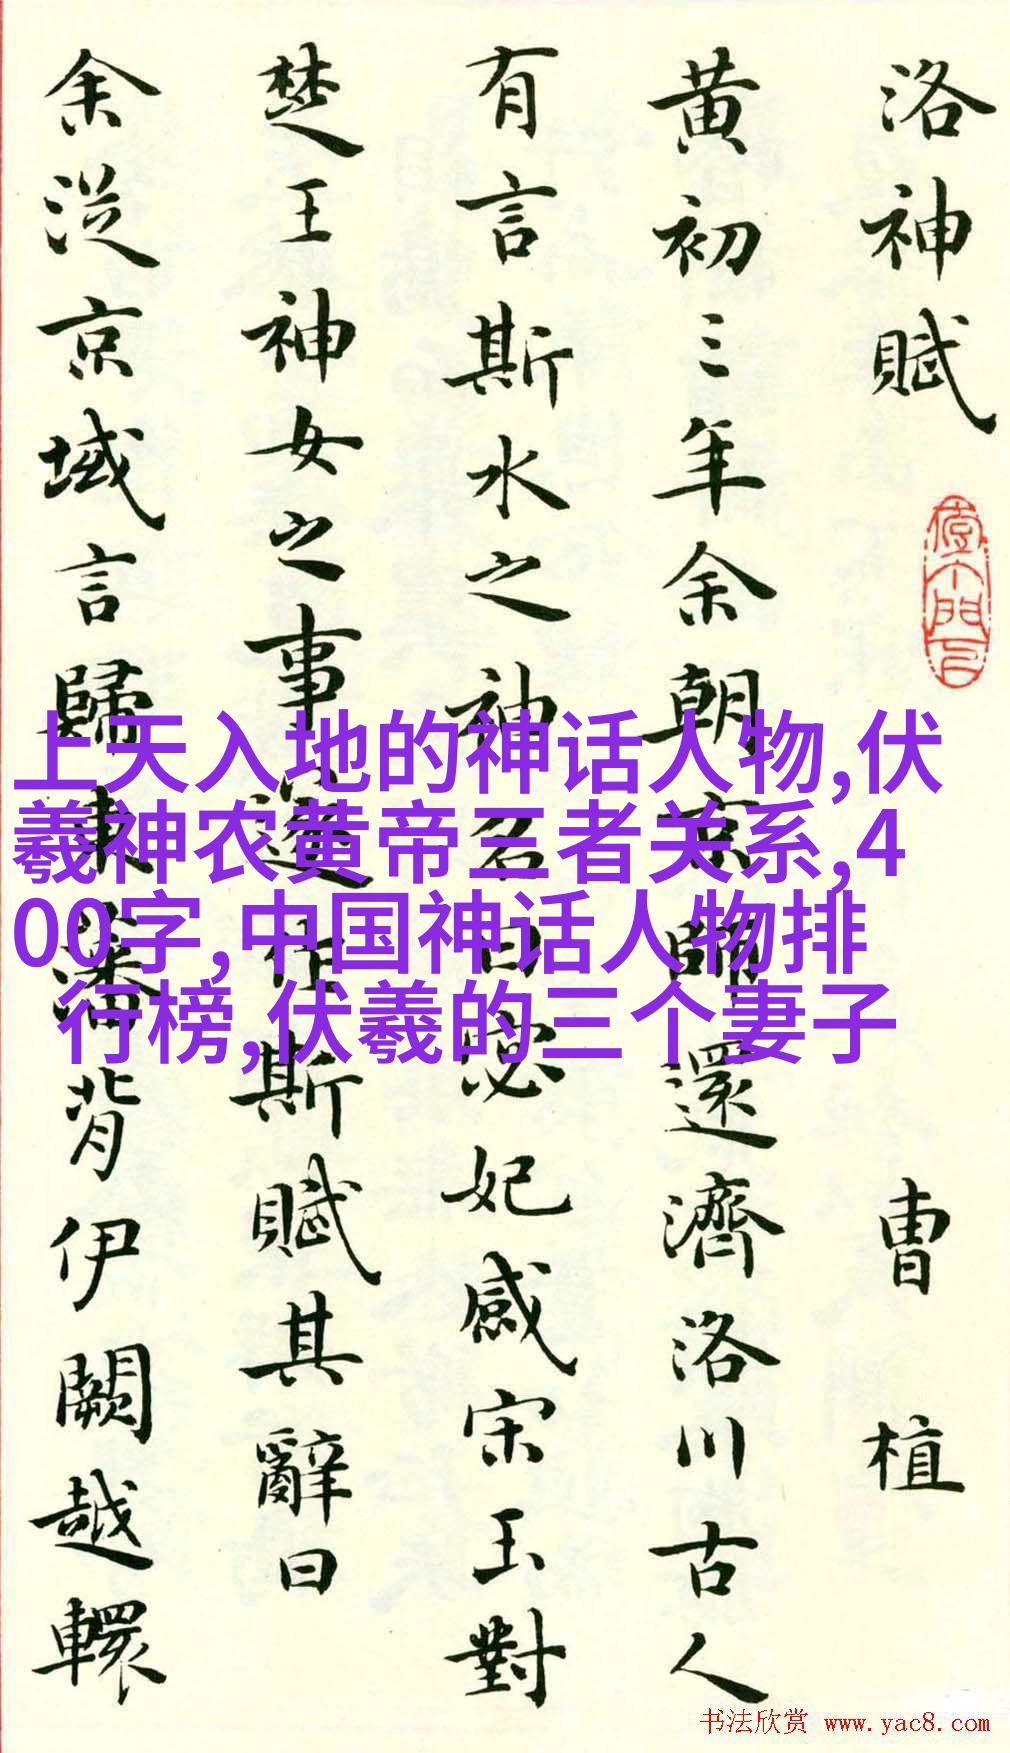 洛神賦
曹植
黄初三年余朝京師還濟洛川古人
有言斯水之神名曰宓妃感宋玉對
楚王神女之事遂作斯賦其辭曰
余從京域言歸東藩背伊闕越轘
上天入地的神话人物,伏
羲神农黄帝三者关系,4
00字,中国神话人物排
行榜,伏羲的三个妻子
书法欣赏 www.yac8.com